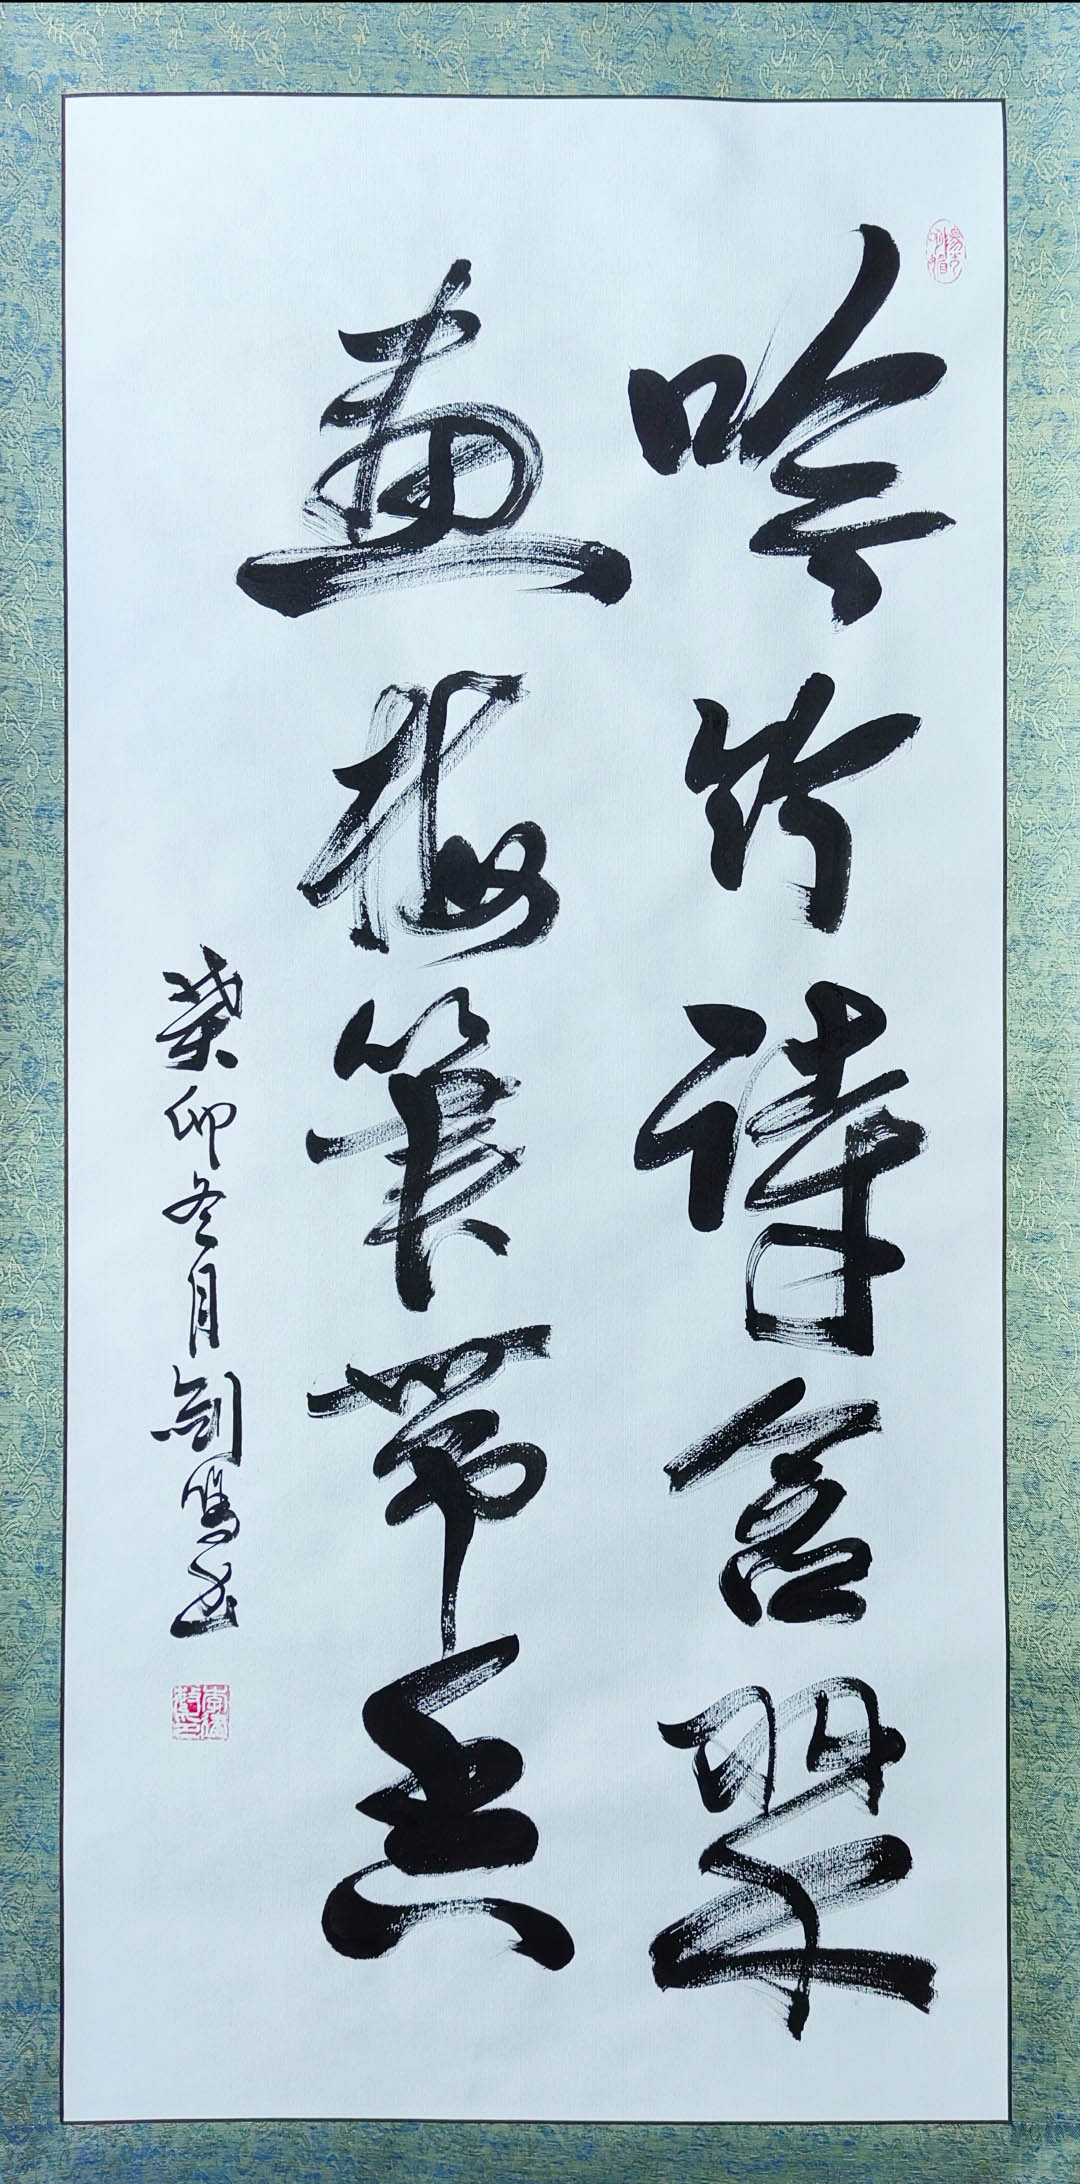 吟竹诗含翠
画梅笔带香
癸卯冬月剑鸣书